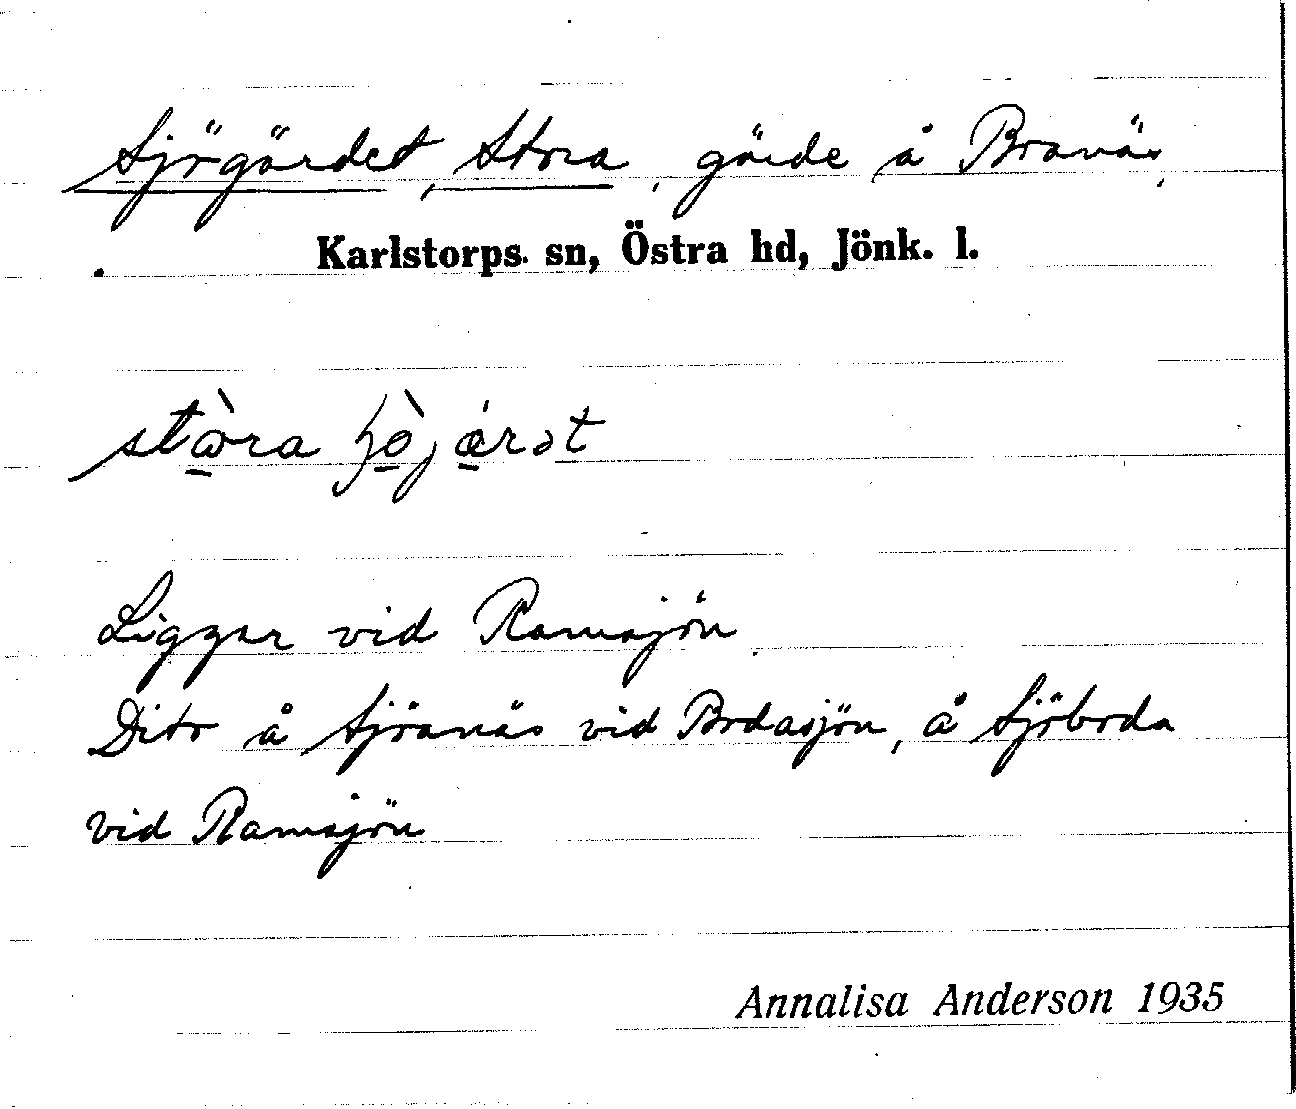 Sjögärdet, Stora, gärde å Bravär,
Karlstorps sn, Östra hd, Jönk. l.
Ligger vid Ramsjön.
Dito å Sjöanäs vid Bodasjön, å Sjöboda
vid Ramsjön
Annalisa Anderson 1935